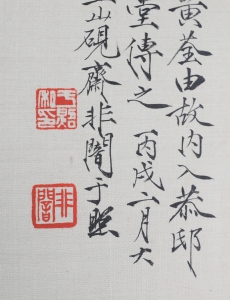 黄荃由故内入恭邸
堂傳之 丙戌二月大
山硯齋非闇于照
于照私印
非闇